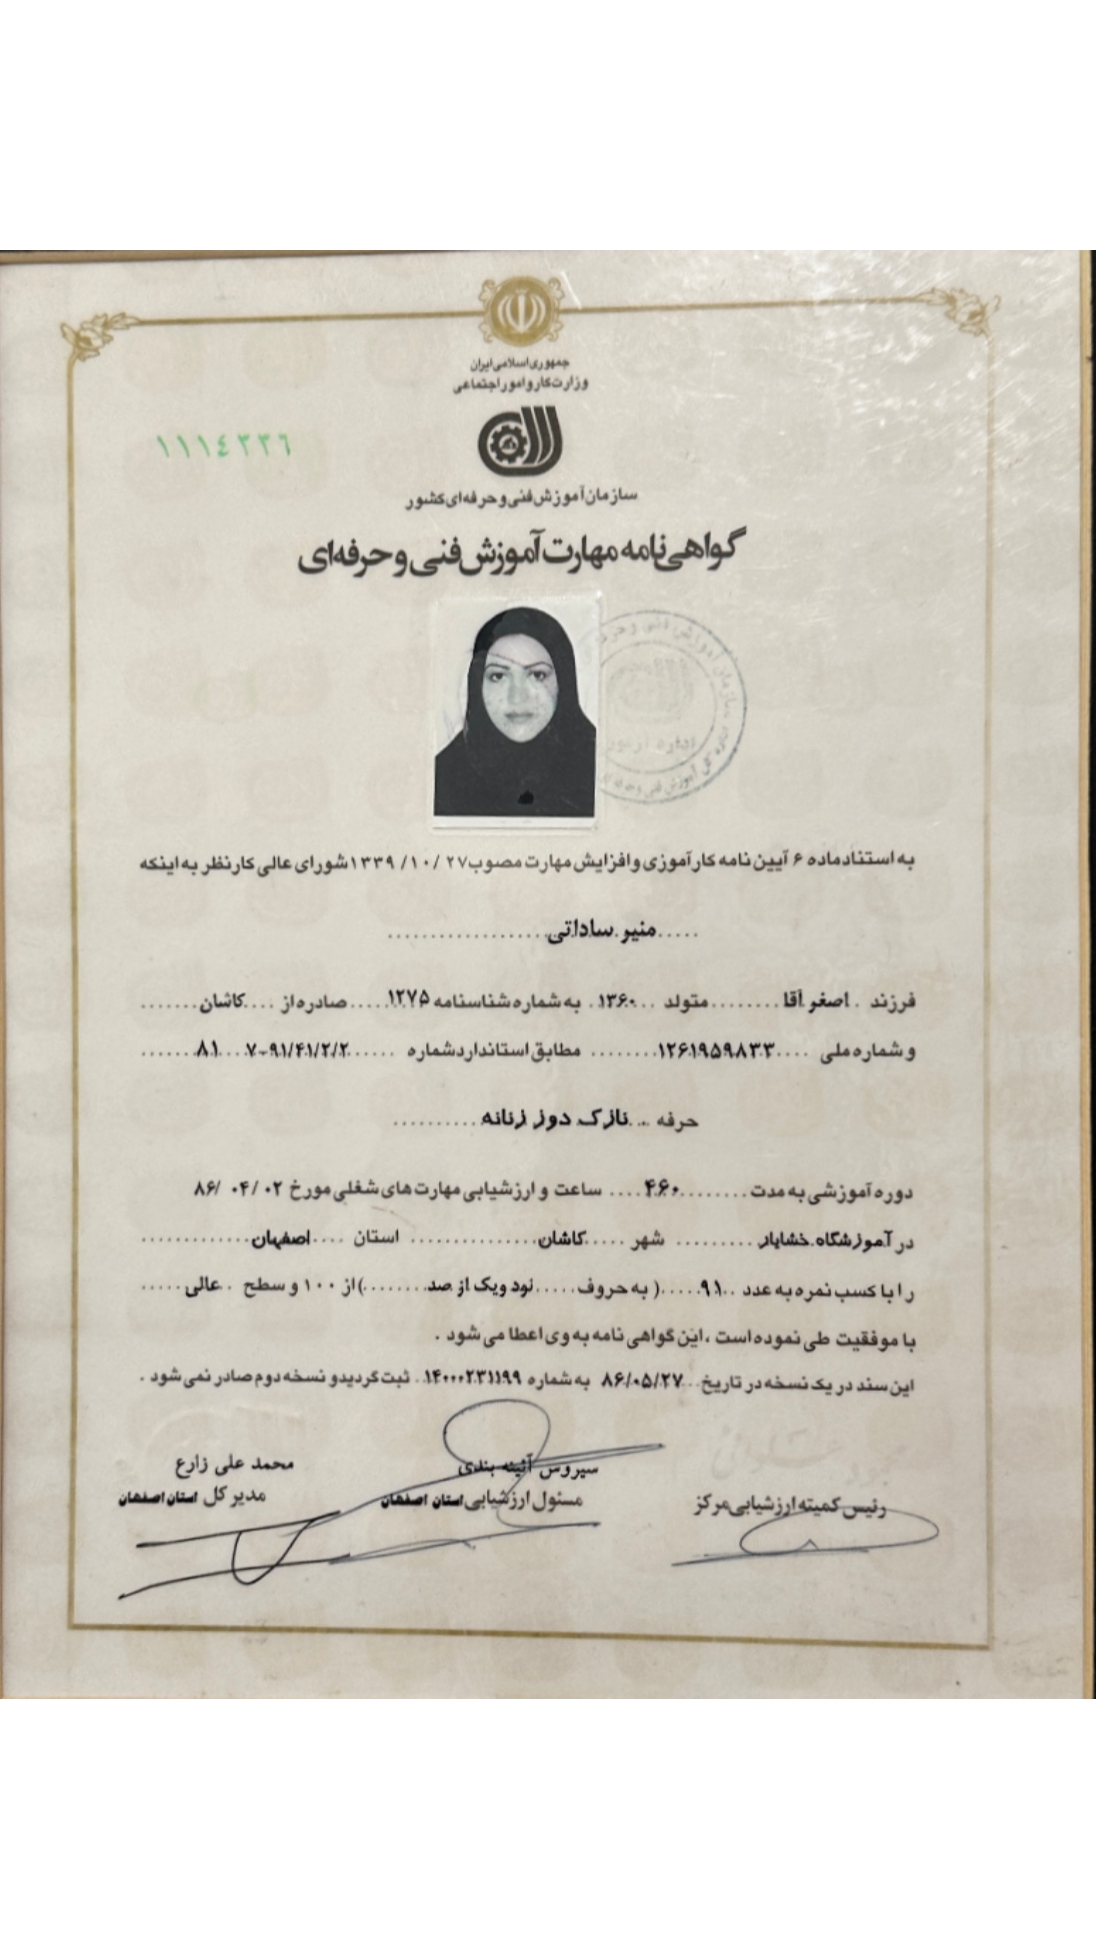 جمهوری اسلامی ایران
وزارت کار و امور اجتماعی
۱۱۱٤۳۳٦
سازمان آموزش فنی و حرفه‌ای کشور
گواهی‌نامه مهارت آموزش فنی و حرفه‌ای
به استناد ماده ۶ آیین نامه کارآموزی و افزایش مهارت مصوب ۲۷ /۱۰ /۱۳۳۹ شورای عالی کار نظر به اینکه
منیر ساداتی
فرزند اصغر آقا متولد ۱۳۶۰ به شماره شناسنامه ۱۲۷۵ صادره از کاشان
و شماره ملی ۱۲۶۱۹۵۹۸۳۳ مطابق استاندارد شماره ۷-۹۱/۴۱/۲/۲ ۸۱
حرفه نازک دوز زنانه
دوره آموزشی به مدت ۴۶۰ ساعت و ارزشیابی مهارت های شغلی مورخ ۰۲ /۰۴ /۸۶
در آموزشگاه خشایار شهر کاشان استان اصفهان
را با کسب نمره به عدد ۹۱ ( به حروف نود ویک از صد ) از ۱۰۰ و سطح عالی
با موفقیت طی نموده است ، این گواهی نامه به وی اعطا می شود .
این سند در یک نسخه در تاریخ ۸۶/۰۵/۲۷ به شماره ۱۴۰۰۰۲۳۱۱۹۹ ثبت گردید و نسخه دوم صادر نمی شود .
رئیس کمیته ارزشیابی مرکز
سیروس آئینه بندی
مسئول ارزشیابی استان اصفهان
محمد علی زارع
مدیر کل استان اصفهان